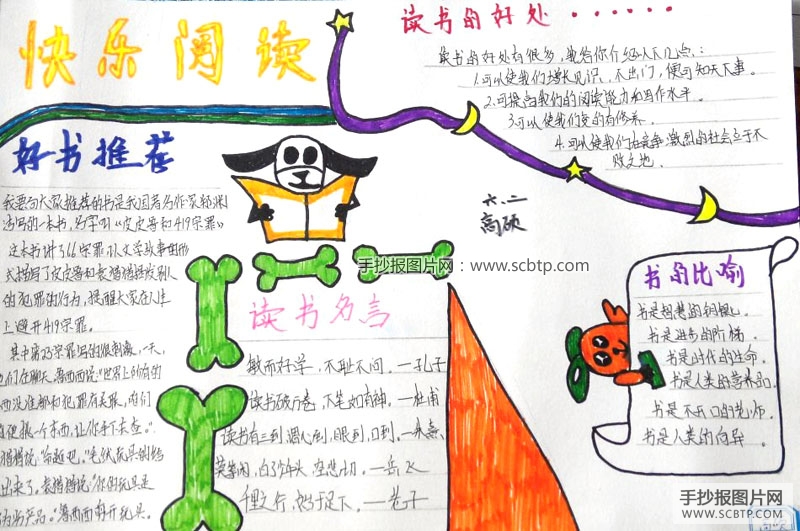 快乐阅读
读书的好处······
读书的好处有很多,我给你介绍以下几点:
1.可以使我们增长见识,不出门,便可知天下事。
2.可提高我们的阅读能力和写作水平。
3.可以使我们变的有修养。
4.可以使我们在竞争激烈的社会立于不
败之地。
好书推荐
我要向大家推荐的书是我国著名作家
写的一本书,名字叫《皮皮鲁和419宗罪》
这本书讲了66宗罪,以文学故事的形
式描写了皮皮鲁和
的犯罪的行为,提醒大家在人生
上避开419宗罪。
其中第23宗罪写的很刺激,一天,
们在聊天,
西没准都和犯罪有关联,咱们
便挑一个东西,让你手下去查。”
出来了。
六.二
高硕
手抄报图片网:www.scbtp.com
读书名言
敏而好学,不耻下问。—孔子
读书破万卷,下笔如有神。—杜甫
读书有三到,谓心到,眼到,口到。—朱熹
莫等闲,白了少年头,空悲切。—岳飞
千里之行,始于足下。—老子
书的比喻
书是智慧的钥匙。
书是进步的阶梯。
书是时代的生命。
书是人类的营养品。
书是不开口的老师。
书是人类的向导。
手抄报图片网
SCBTP.COM